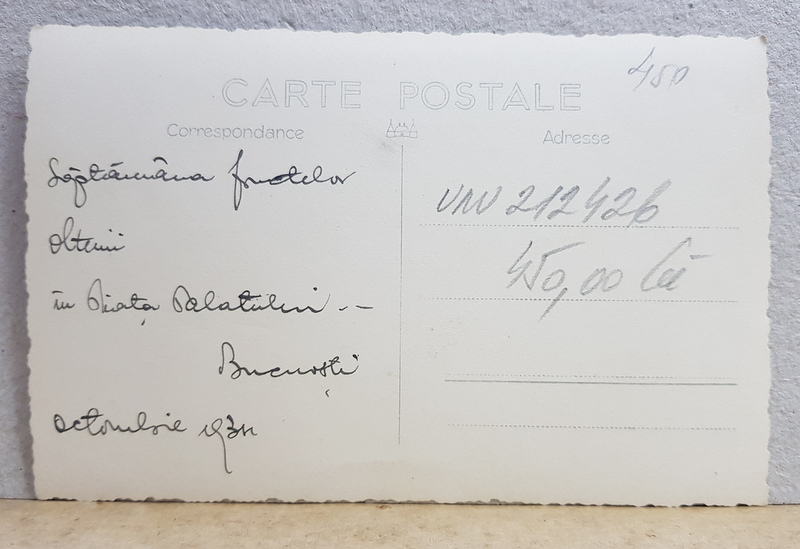 450
CARTE POSTALE
Correspondance
Adresse
Săptămâna fructelor
Olteniei
în Piața Palatului --
București
octombrie 193
UNV 212426
450,00 lei